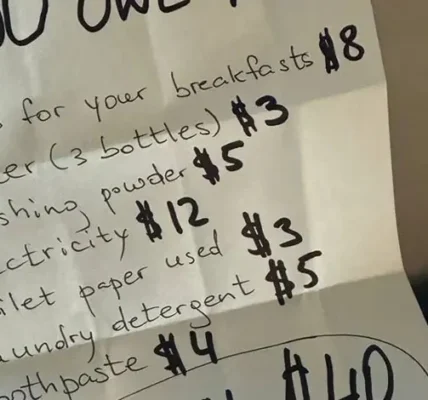 OU OWE
for your breakfasts $8
er (3 bottles) $3
shing powder $5
ctricity $12
ilet paper used $3
aundry detergent $5
oothpaste $4
$40